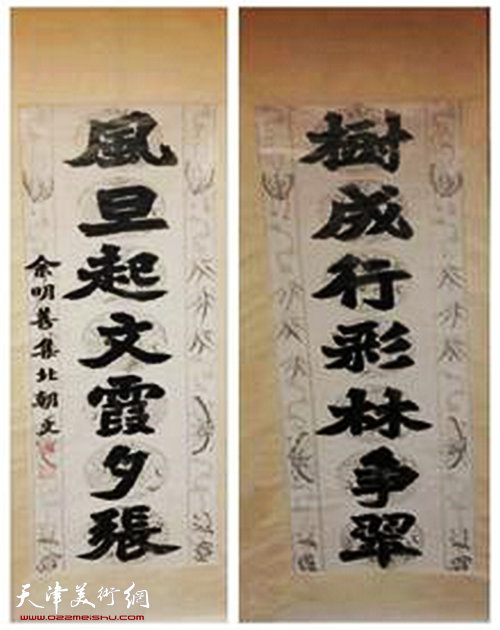 樹成行彩林爭翠
風旦起文霞夕張
余明善集北朝文
天津美術網
www.022meishu.com